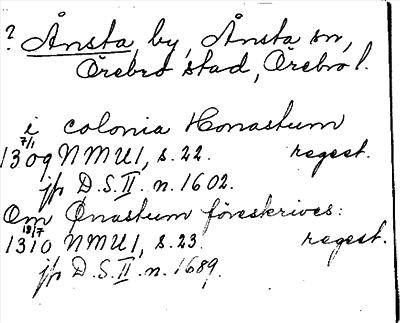 ? Ånsta, by, Ånsta sn,
Örebro stad, Örebro l.
i colonia Honastum
7/1
1309 NMU1, s. 22. regest.
jfr D.S. II. n. 1602.
Om Ønastum föreskrives:
1310 NMU1, s. 23. regest.
jfr D.S. II. n. 1689.